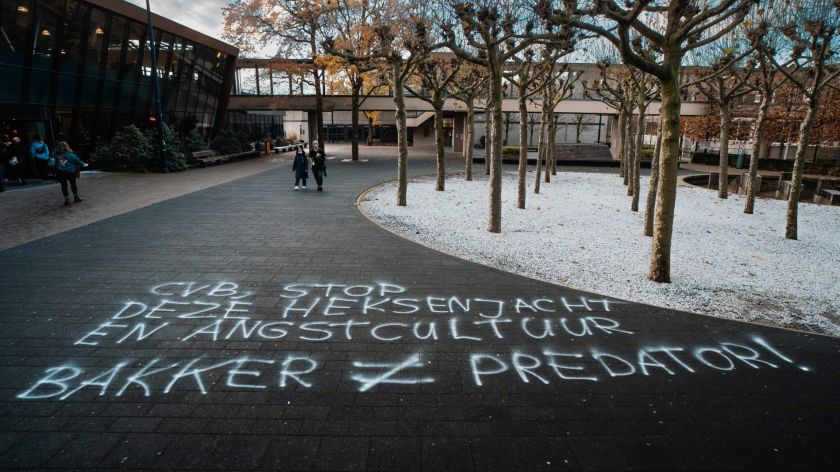 CVB, STOP
DEZE HEKSENJACHT
EN ANGSTCULTUUR
BAKKER ≠ PREDATOR!